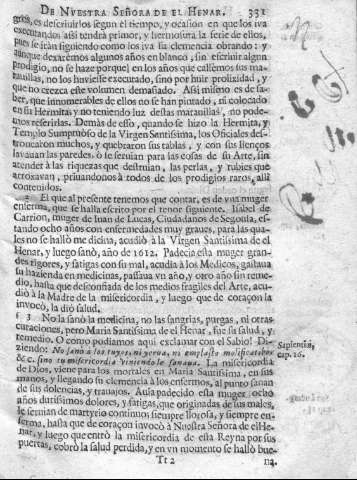 DE NVESTRA SEÑORA DE EL HENAR. 331
es descriuirlos segun el tiempo, y ocasion en que los iva
executando: assi tendrà primor, y hermosura la serie de ellos,
pues se iràn siguiendo como los iva su clemencia obrando: y
aunque dexarèmos algunos años en blanco, sin escriuir algun
prodigio, no se haze porque en los años que callèmos sus ma-
rauillas, no los huviesse executado, sino por huir prolixidad, y
que no crezca este volumen demasiado. Assi mismo es de sa-
ber, que innumerables de ellos no se han pintado, ni colocado
en su Hermita: y no teniendo luz destas marauillas, no pode-
mos referirlas. Demàs de esso, quando se hizo la Hermita, y
Templo Sumptuoso de la Virgen Santissima, los Oficiales des-
troncaron muchos, y quebraron sus tablas, y con sus lienços
lavauan las paredes, ò se seruian para las cosas de su Arte, sin
atender à las riquezas que destruian, las perlas, y rubies que
arroxavan, priuandonos à todos de los prodigios raros, alli
contenidos.
2 El que al presente tenemos que contar, es de vna muger
enferma, que se halla escrito por el tenor siguiente. Isabel de
Carrion, muger de Iuan de Lucas, Ciudadanos de Segouia, es-
tando ocho años con enfermedades muy graues, para las qua-
les no se hallò medicina, acudiò à la Virgen Santissima de el
Henar, y luego sanò, año de 1612. Padecia esta muger gran-
des rigores, y fatigas con su mal, acudia à los Medicos, gastaua
su hazienda en medicinas, passaua vn año, y otro año sin reme-
dio, hasta que desconfiada de los medios fragiles del Arte, acu-
diò à la Madre de la misericordia, y luego que de coraçon la
invocò, la diò salud.
3 No la sanò la medicina, no las sangrias, purgas, ni otras
curaciones, pero Maria Santissima de el Henar, fue su salud, y
remedio. O como podiamos aqui exclamar con el Sabio! Di-
ziendo: No sanò à los tuyos, ni yerua, ni emplasto molificatiuo
&c. sino tu misericordia viniendo le sanaua. La misericordia
Sapientia,
cap. 16.
de Dios, viene para los mortales en Maria Santissima, en sus
manos, y llegando su clemencia à los enfermos, al punto sanan
de sus dolencias, y trauajos. Auia padecido esta muger ocho
años durissimos dolores, y fatigas, que originadas de sus males,
le seruian de martyrio continuo; siempre llorosa, y siempre en-
ferma, hasta que de coraçon invocò à Nuestra Señora de el He-
nar, y luego que entrò la misericordia de esta Reyna por sus
puertas, cobrò la salud perdida, y en vn momento se hallò bue-
Tt 2
na.